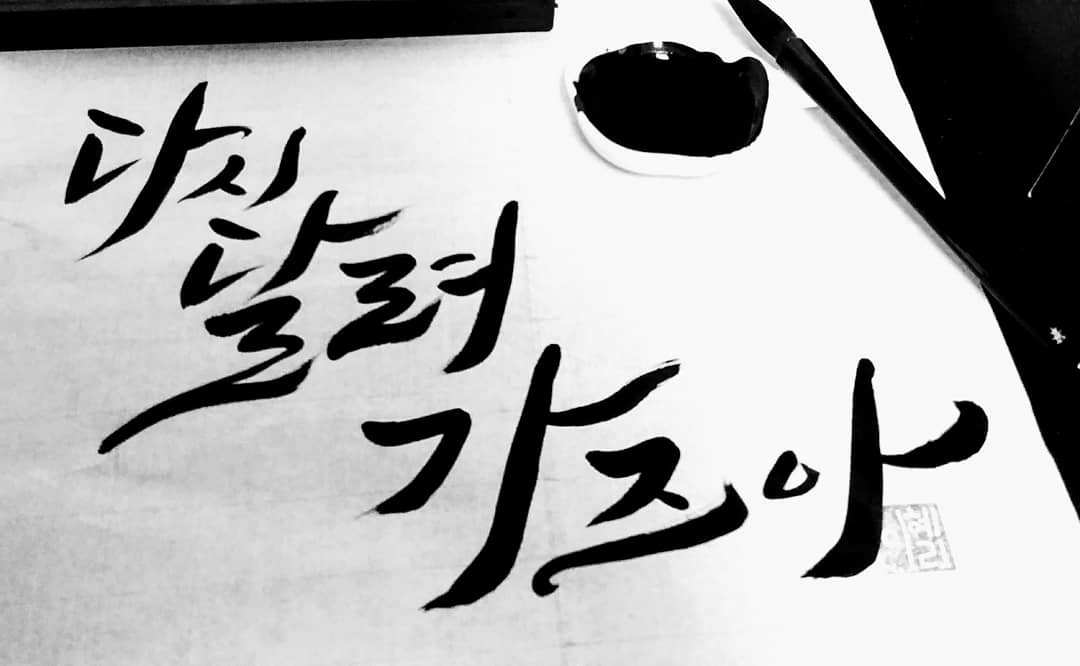 다시
달려
가즈아